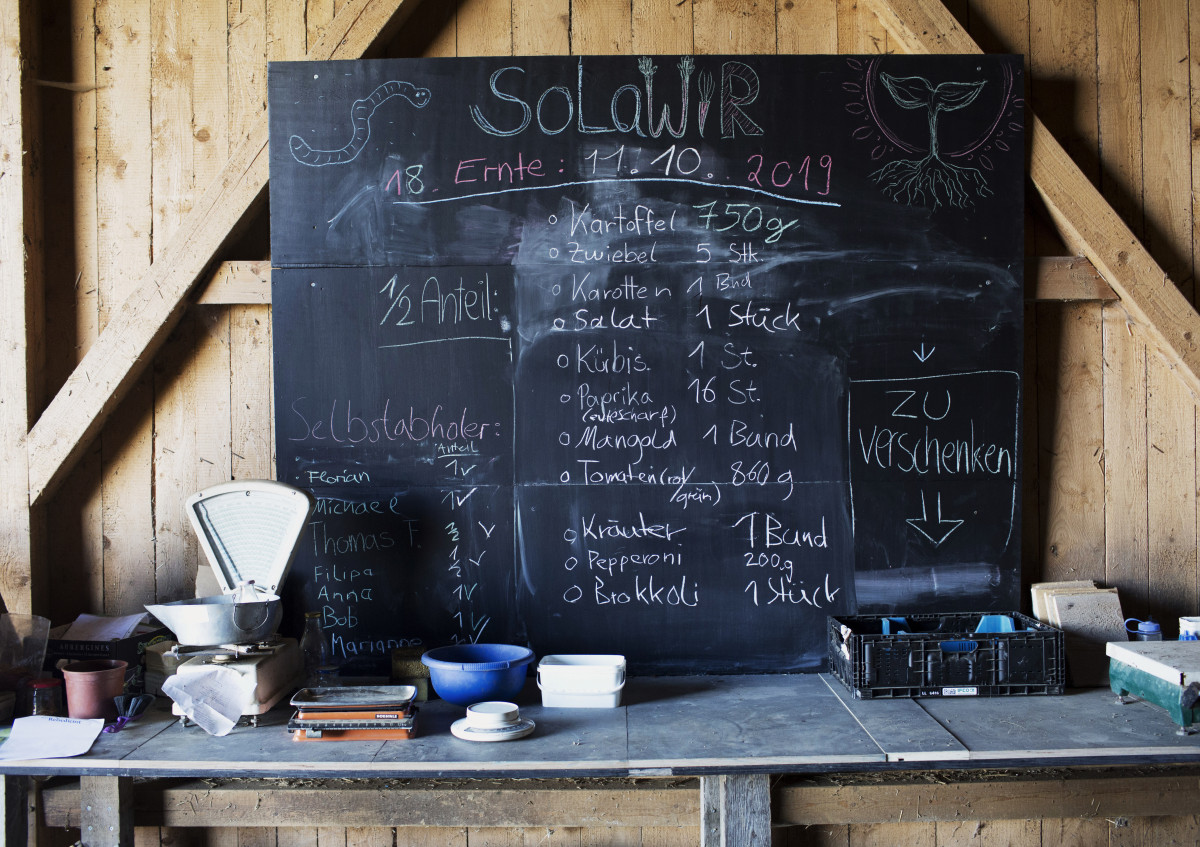 SoLaWiR
18. Ernte: 11.10. 2019
Kartoffel 750g
Zwiebel 5 Stk.
Karotten 1 Bnd
Salat 1 Stück
Kürbis. 1 St.
Paprika 16 St.
Mangold 1 Bund
Tomaten (rot/grün) 860 g
Kräuter 1 Bund
Pepperoni 200g
Brokkoli 1 Stück
1/2 Anteil:
Selbstabholer:
Anteil
Florian 1 ✓
Michael 1 ✓
Thomas F.
Filipa
Anna
Bob
Marianne
ZU
verschenken